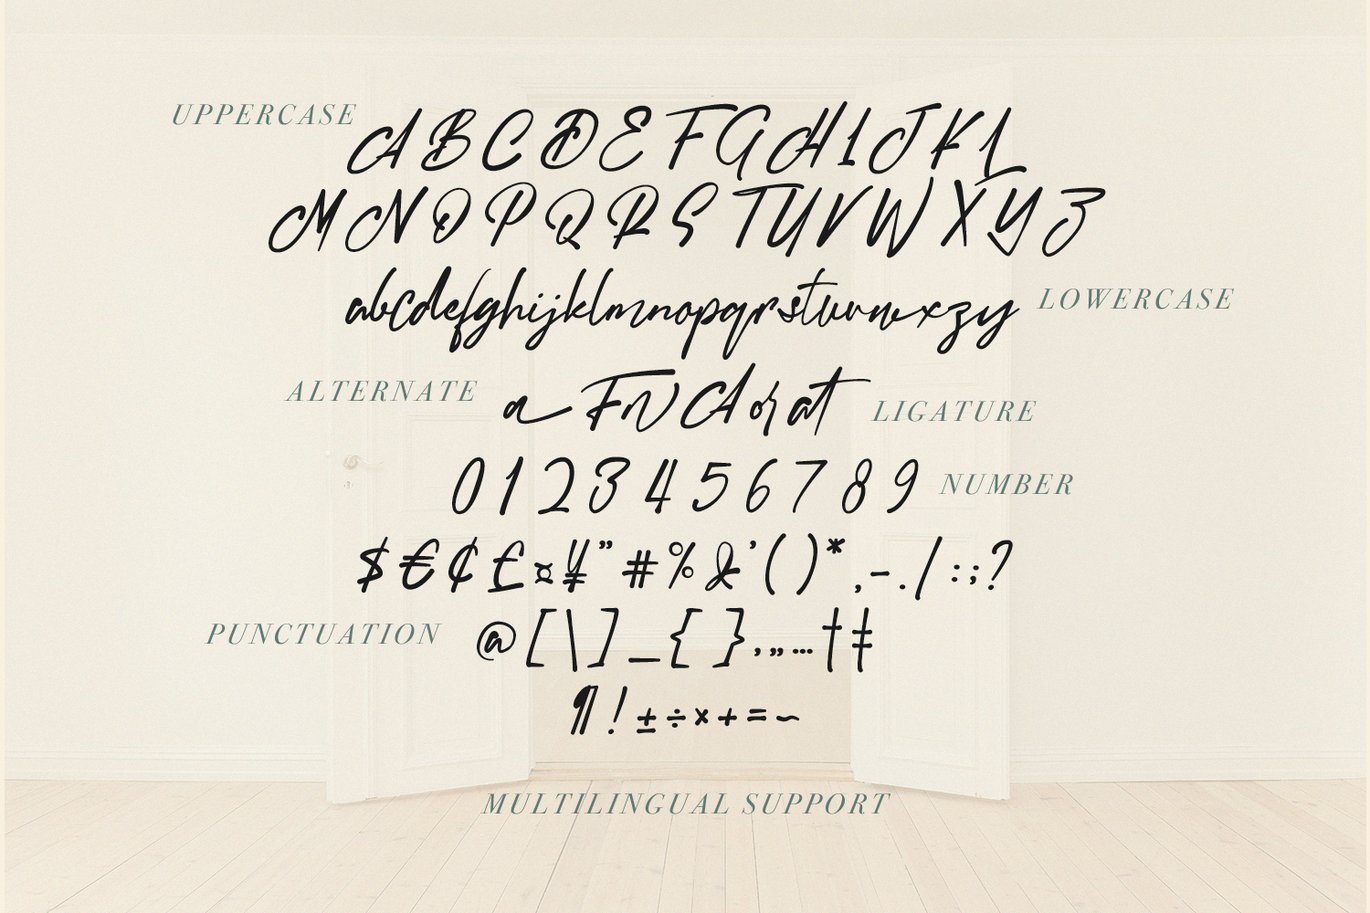 UPPERCASE
A B C D E F G H I J K L
M N O P Q R S T U V W X Y Z
abcdefghijklmnopqrstuvwxzy
LOWERCASE
ALTERNATE
a F n N A or at
LIGATURE
0 1 2 3 4 5 6 7 8 9
NUMBER
$ € ¢ £ ¤ ¥ " # % & ' ( ) * , - . / : ; ?
PUNCTUATION
@ [ \ ] _ { } ‚ „ … † ‡
¶ ! ± ÷ × + = ~
MULTILINGUAL SUPPORT